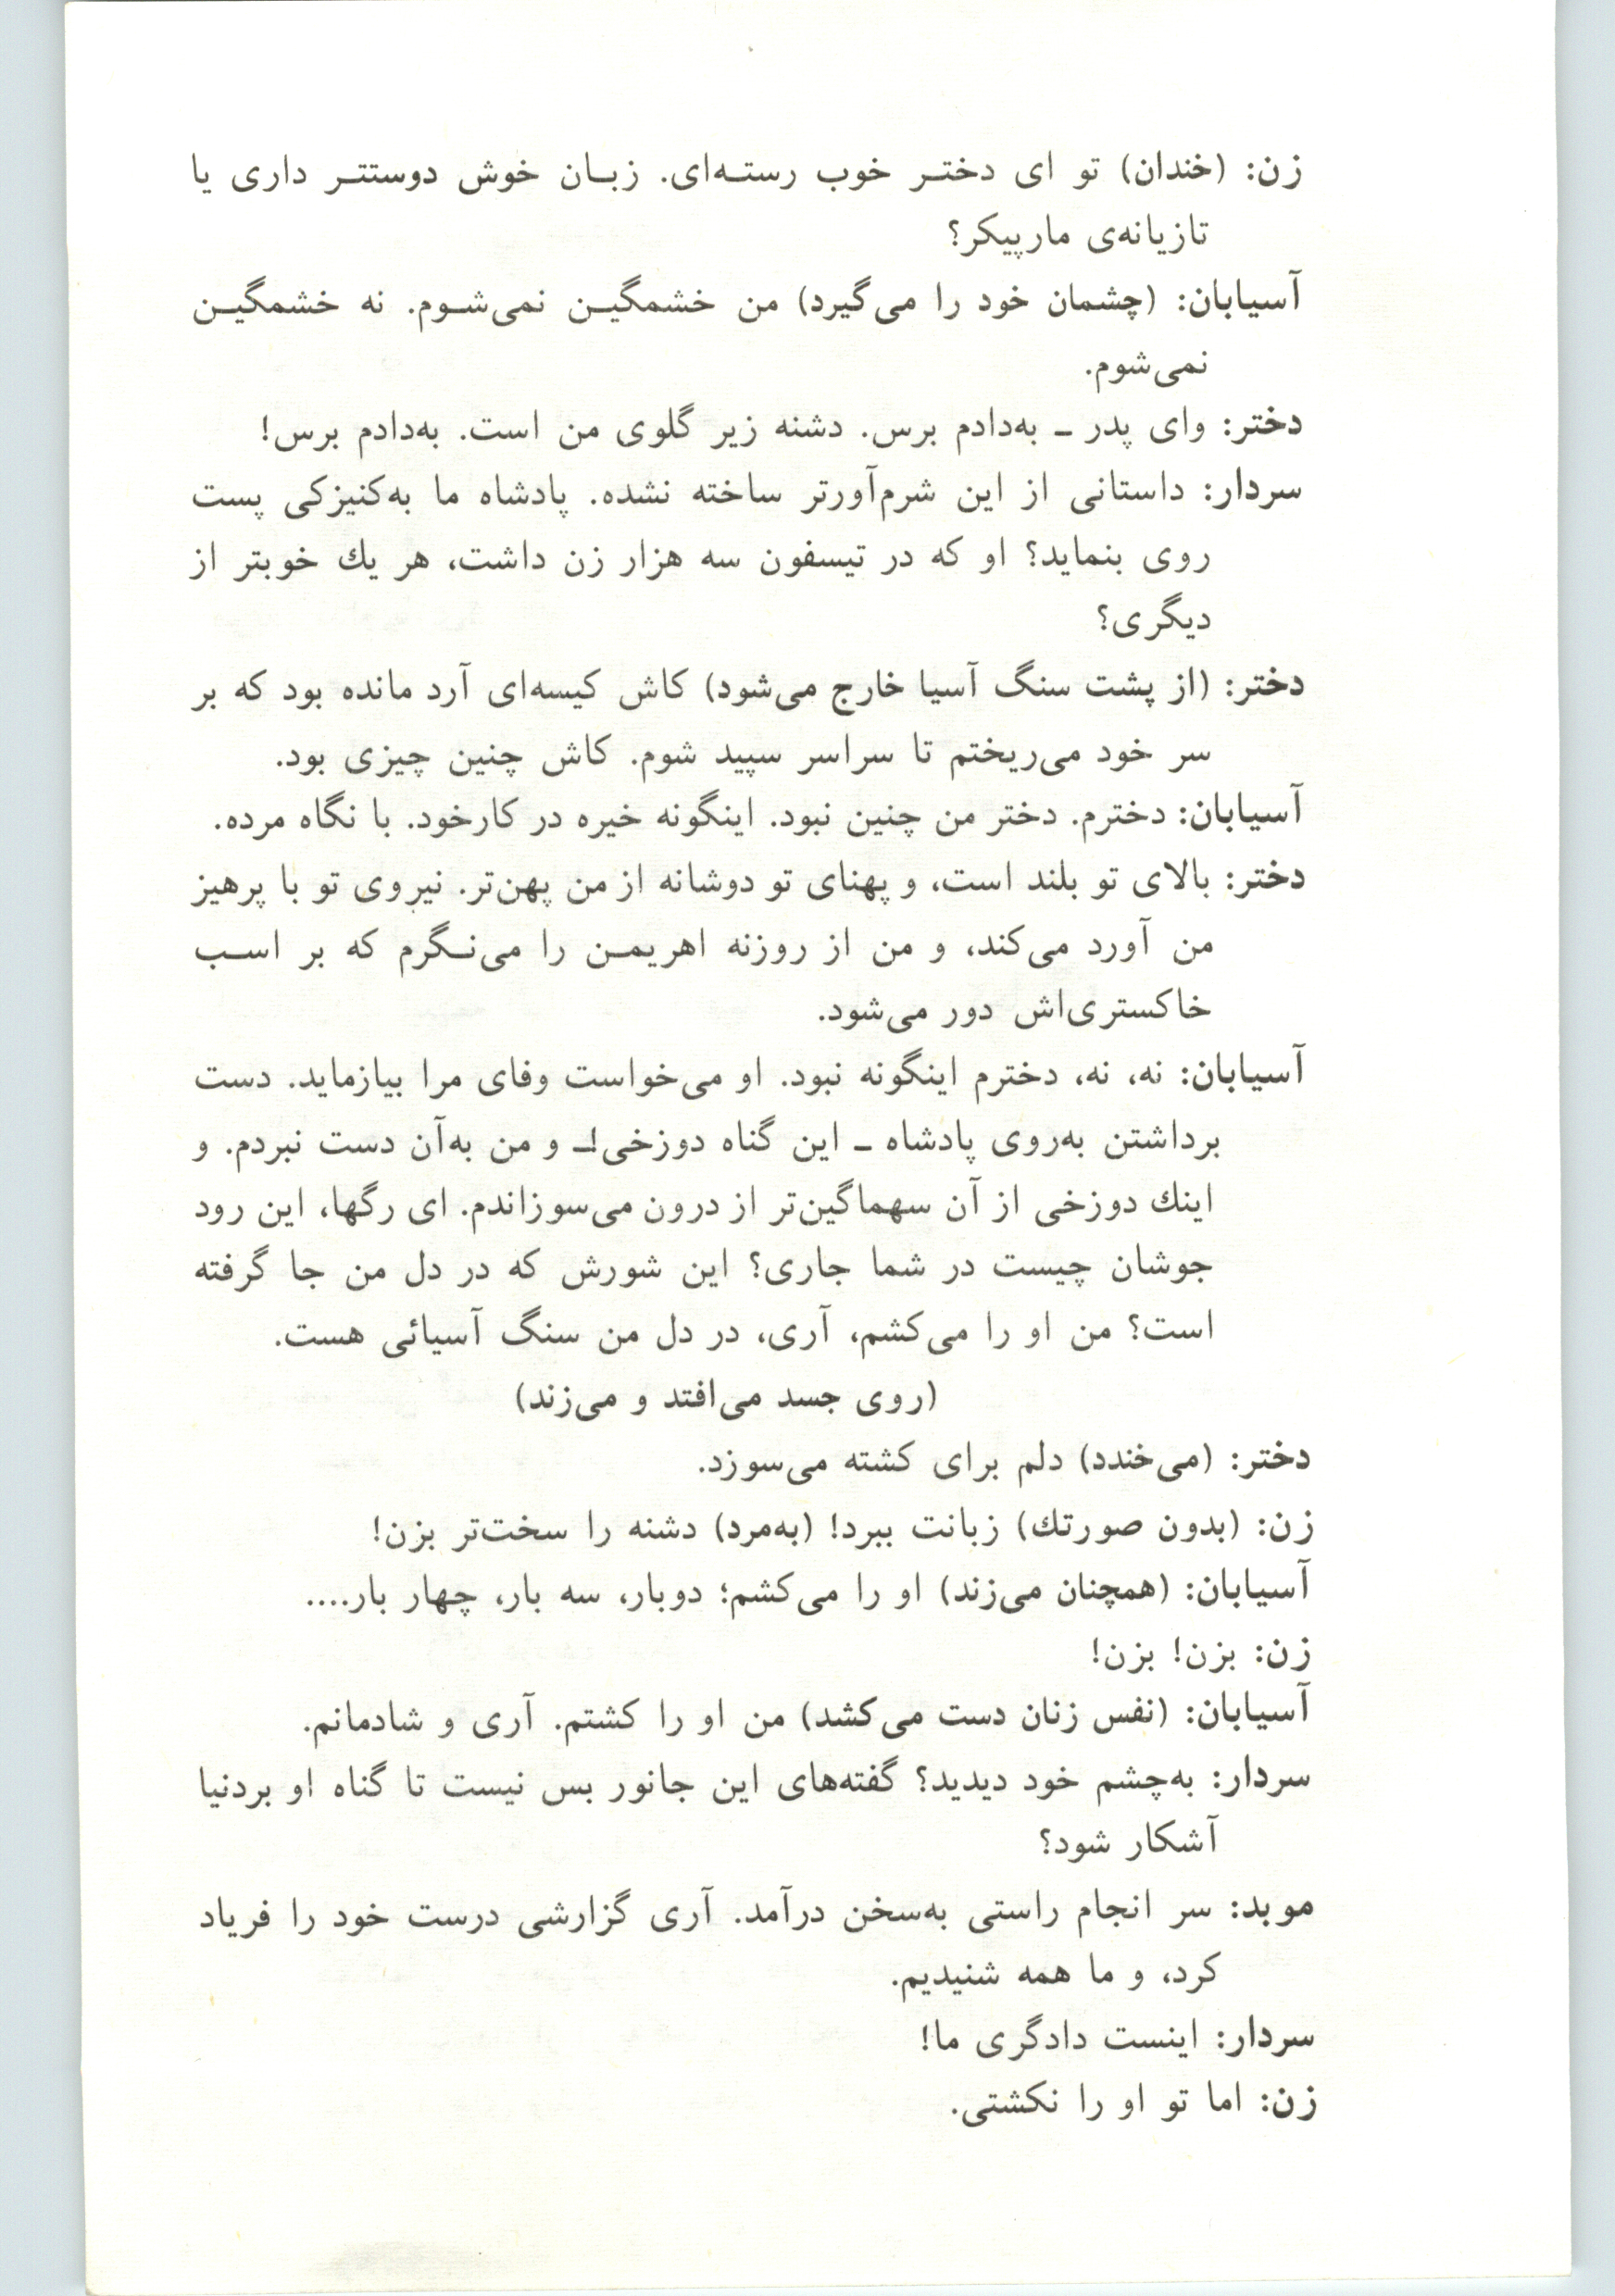 زن: (خندان) تو ای دختر خوب رسته‌ای. زبان خوش دوستتر داری یا
تازیانه‌ی مارپیکر؟
آسیابان: (چشمان خود را می‌گیرد) من خشمگین نمی‌شوم. نه خشمگین
نمی‌شوم.
دختر: وای پدر ـ به‌دادم برس. دشنه زیر گلوی من است. به‌دادم برس!
سردار: داستانی از این شرم‌آورتر ساخته نشده. پادشاه ما به‌کنیزکی پست
روی بنماید؟ او که در تیسفون سه هزار زن داشت، هر یك خوبتر از
دیگری؟
دختر: (از پشت سنگ آسیا خارج می‌شود) کاش کیسه‌ای آرد مانده بود که بر
سر خود می‌ریختم تا سراسر سپید شوم. کاش چنین چیزی بود.
آسیابان: دخترم. دختر من چنین نبود. اینگونه خیره در کارخود. با نگاه مرده.
دختر: بالای تو بلند است، و پهنای تو دوشانه از من پهن‌تر. نیروی تو با پرهیز
من آورد می‌کند، و من از روزنه اهریمن را می‌نگرم که بر اسب
خاکستری‌اش دور می‌شود.
آسیابان: نه، نه، دخترم اینگونه نبود. او می‌خواست وفای مرا بیازماید. دست
برداشتن به‌روی پادشاه ـ این گناه دوزخی!ـ و من به‌آن دست نبردم. و
اینك دوزخی از آن سهماگین‌تر از درون می‌سوزاندم. ای رگها، این رود
جوشان چیست در شما جاری؟ این شورش که در دل من جا گرفته
است؟ من او را می‌کشم، آری، در دل من سنگ آسیائی هست.
(روی جسد می‌افتد و می‌زند)
دختر: (می‌خندد) دلم برای کشته می‌سوزد.
زن: (بدون صورتك) زبانت ببرد! (به‌مرد) دشنه را سخت‌تر بزن!
آسیابان: (همچنان می‌زند) او را می‌کشم؛ دوبار، سه بار، چهار بار....
زن: بزن! بزن!
آسیابان: (نفس زنان دست می‌کشد) من او را کشتم. آری و شادمانم.
سردار: به‌چشم خود دیدید؟ گفته‌های این جانور بس نیست تا گناه او بردنیا
آشکار شود؟
موبد: سر انجام راستی به‌سخن درآمد. آری گزارشی درست خود را فریاد
کرد، و ما همه شنیدیم.
سردار: اینست دادگری ما!
زن: اما تو او را نکشتی.